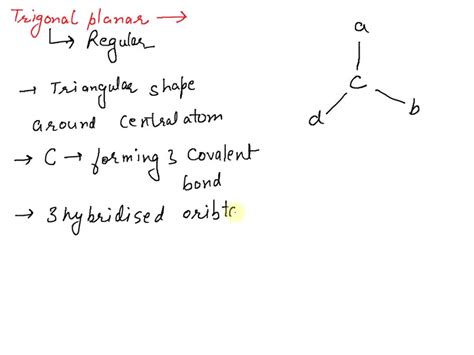 Trigonal planar →
↳ Regular
→ Triangular shape
around central atom
→ C → forming 3 covalent
bond
→ 3 hybridised oribta
a
C
d
b